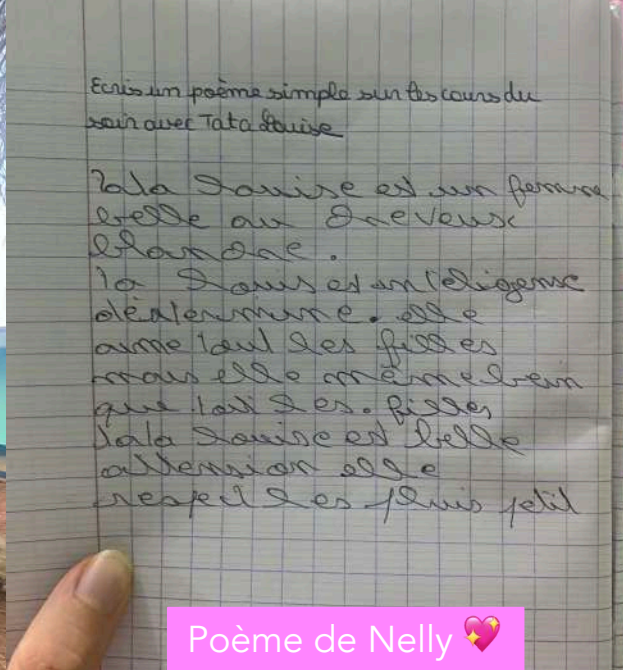 Ecris un poème simple sur tes cours du
soir avec Tata Louise
Tata Louise est un femme
belle au cheveux
blanche.
ta Louis est inteligense
déatermine. elle
aime tout les filles
mais elle m'aime bein
que tout les. filles
Tata Louise est belle
attension elle
respet les pluis petit
Poème de Nelly 💖